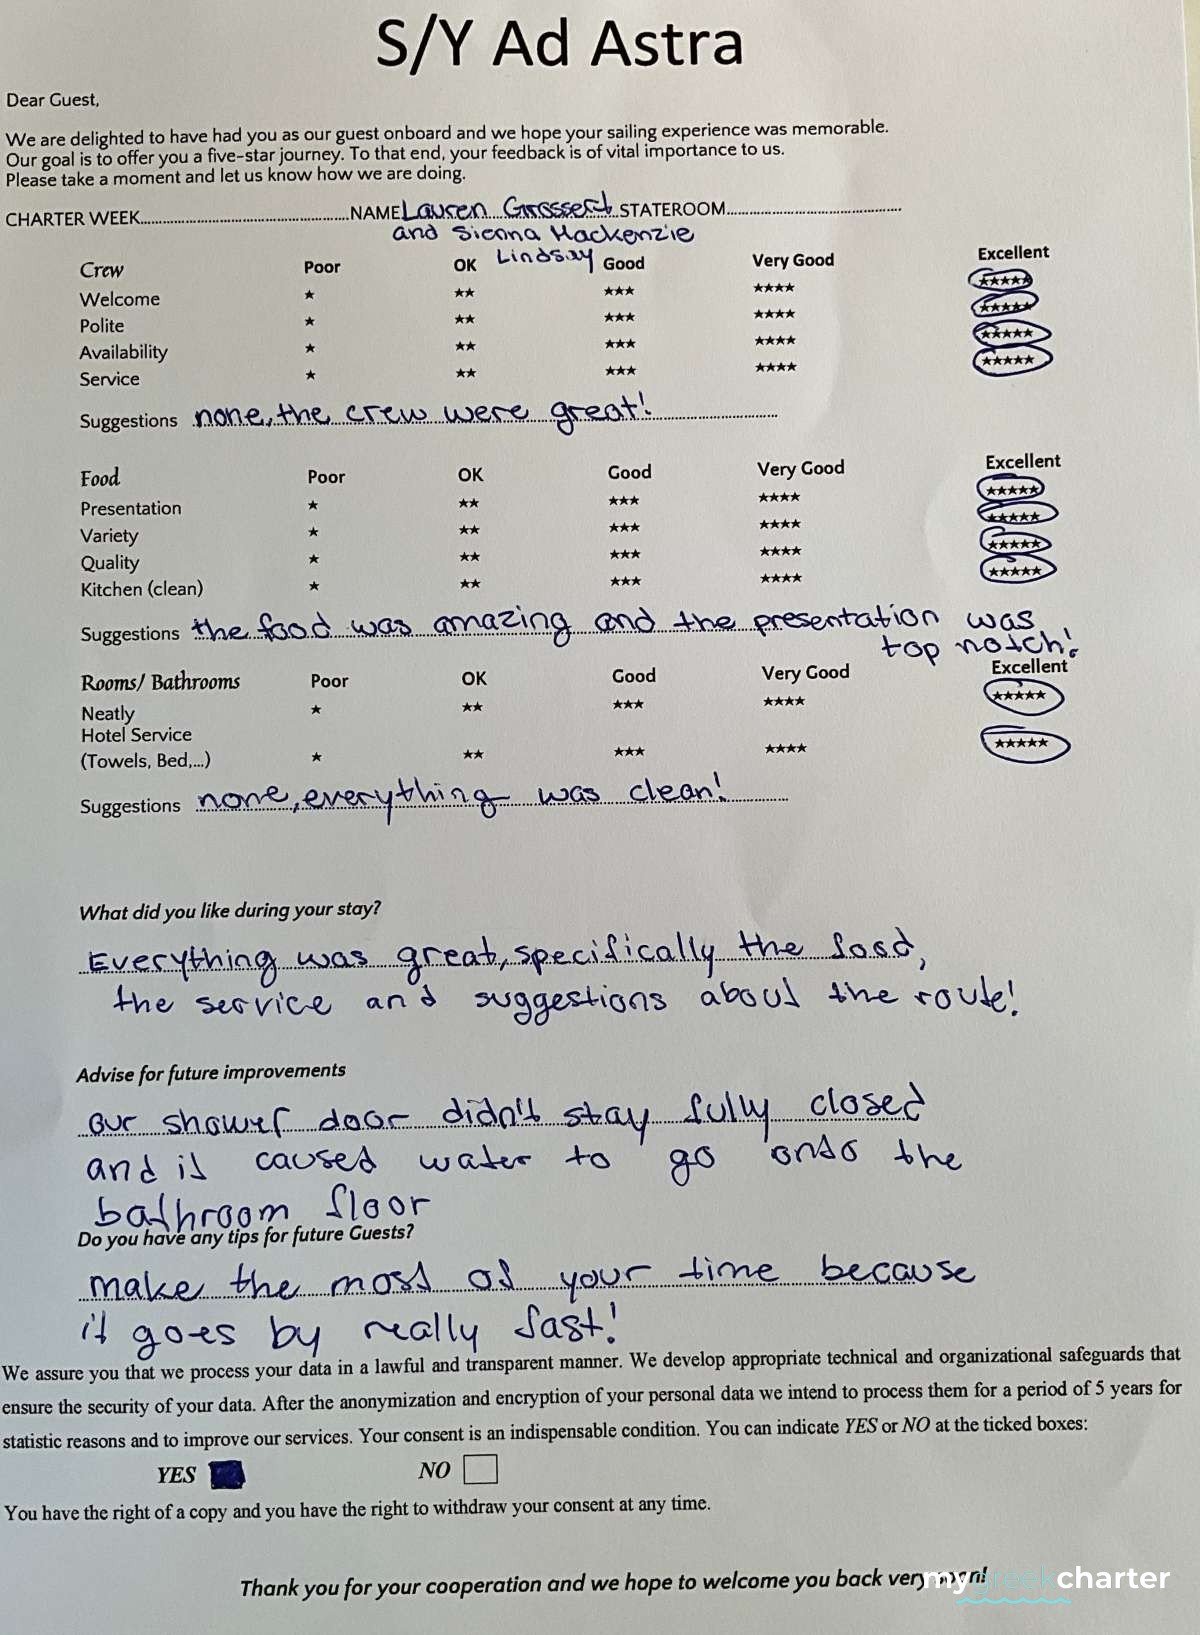 S/Y Ad Astra
Dear Guest,
We are delighted to have had you as our guest onboard and we hope your sailing experience was memorable.
Our goal is to offer you a five-star journey. To that end, your feedback is of vital importance to us.
Please take a moment and let us know how we are doing.
CHARTER WEEK....................NAME Lauren Grossert STATEROOM....................
and Sienna Mackenzie
Lindsay
Crew Poor OK Good Very Good Excellent
Welcome ★ ★★ ★★★ ★★★★ ★★★★★
Polite ★ ★★ ★★★ ★★★★ ★★★★★
Availability ★ ★★ ★★★ ★★★★ ★★★★★
Service ★ ★★ ★★★ ★★★★ ★★★★★
Suggestions none, the crew were great!
Food Poor OK Good Very Good Excellent
Presentation ★ ★★ ★★★ ★★★★ ★★★★★
Variety ★ ★★ ★★★ ★★★★ ★★★★★
Quality ★ ★★ ★★★ ★★★★ ★★★★★
Kitchen (clean) ★ ★★ ★★★ ★★★★ ★★★★★
Suggestions the food was amazing and the presentation was
top notch!
Rooms/ Bathrooms Poor OK Good Very Good Excellent
Neatly ★ ★★ ★★★ ★★★★ ★★★★★
Hotel Service
(Towels, Bed,...) ★ ★★ ★★★ ★★★★ ★★★★★
Suggestions none, everything was clean!
What did you like during your stay?
Everything was great, specifically the food,
the service and suggestions about the route!
Advise for future improvements
our shower door didn't stay fully closed
and it caused water to go onto the
bathroom floor
Do you have any tips for future Guests?
make the most of your time because
it goes by really fast!
We assure you that we process your data in a lawful and transparent manner. We develop appropriate technical and organizational safeguards that
ensure the security of your data. After the anonymization and encryption of your personal data we intend to process them for a period of 5 years for
statistic reasons and to improve our services. Your consent is an indispensable condition. You can indicate YES or NO at the ticked boxes:
YES NO
You have the right of a copy and you have the right to withdraw your consent at any time.
Thank you for your cooperation and we hope to welcome you back very
mygreekcharter